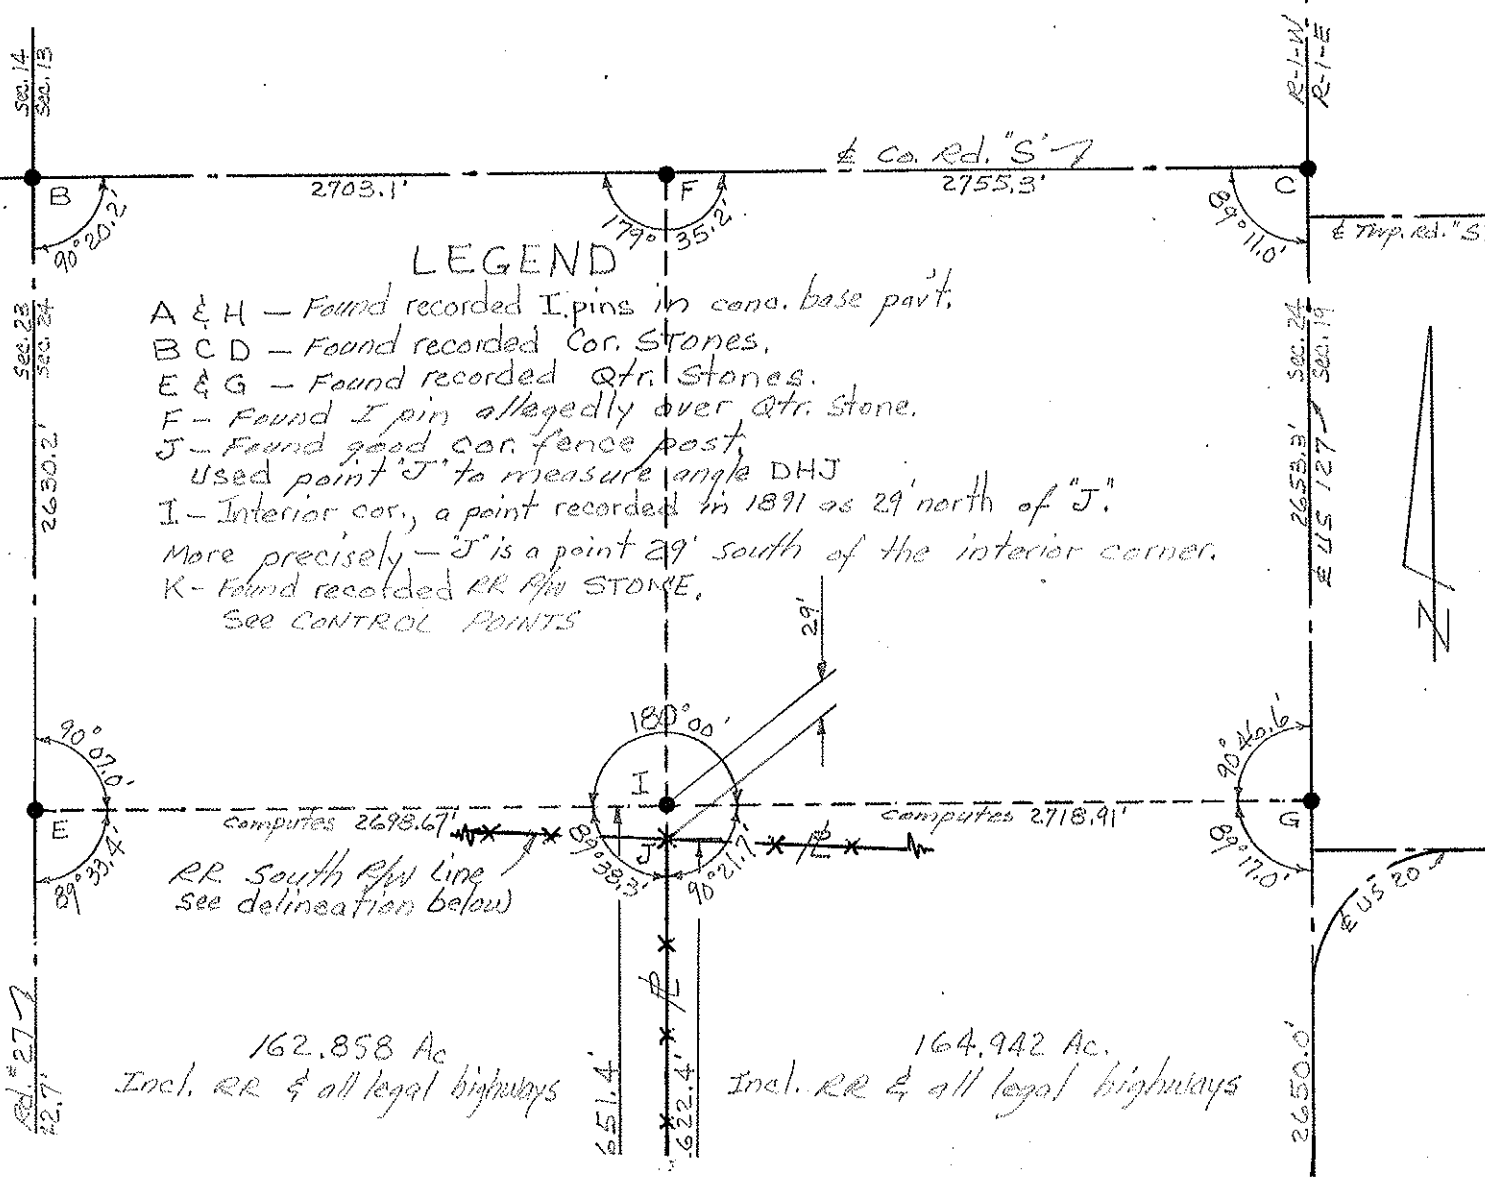 Sec. 14
Sec. 13
R-1-W
R-1-E
℄ Co. Rd. "S"
B
2703.1'
F
2755.3'
C
90°20.2'
179° 35.2'
89°11.0'
℄ Twp. Rd. "S
LEGEND
A & H — Found recorded I.pins in conc. base pav't.
B C D — Found recorded Cor. Stones.
E & G — Found recorded Qtr. Stones.
F - Found I pin allegedly over Qtr. Stone.
J - Found good cor. fence post.
Used point "J" to measure angle DHJ
I - Interior cor., a point recorded in 1891 as 29' north of "J".
More precisely — "J" is a point 29' south of the interior corner.
K - Found recorded RR R/W STONE.
See CONTROL POINTS
Sec. 23
Sec. 24
2630.2'
Sec. 24
Sec. 19
2653.3'
℄ US 127
N
29'
90°07.0'
180°00'
90°46.6'
E
I
G
computes 2698.67'
computes 2718.91'
J
℄
89°33.4'
89°38.3'
90°21.7'
89°17.0'
RR South R/W line
see delineation below
℄ US 20
℄
162.858 Ac
Incl. RR & all legal highways
164.942 Ac.
Incl. RR & all legal highways
Rd. #27
42.7'
651.4'
622.4'
2650.0'